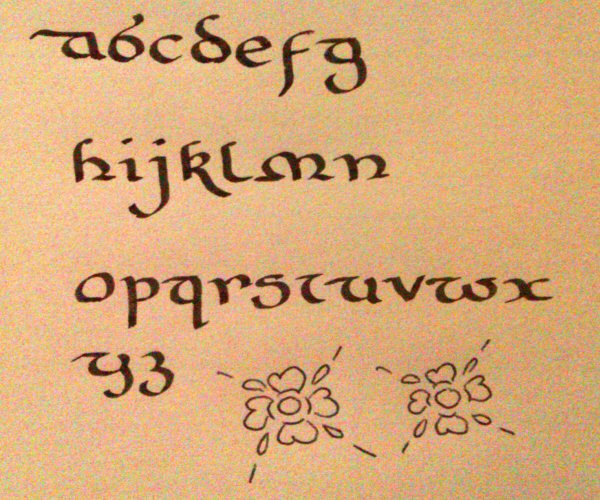 abcdefg
hijklmn
opqrstuvwx
yz